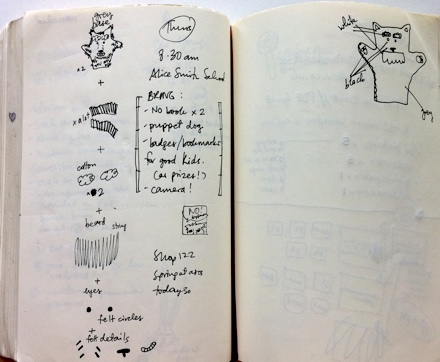 grey
base
x2
+
x a lot
+
cotton
x 2
+
beard string
+
eyes
+
felt circles
+
felt details
Thurs
8:30 am
Alice Smith School
BRING:
- NO book x 2
- puppet dog
- badges/bookmarks
for good kids.
(as prizes!)
- camera!
NO!
Shop 122
today 30
white
black
grey